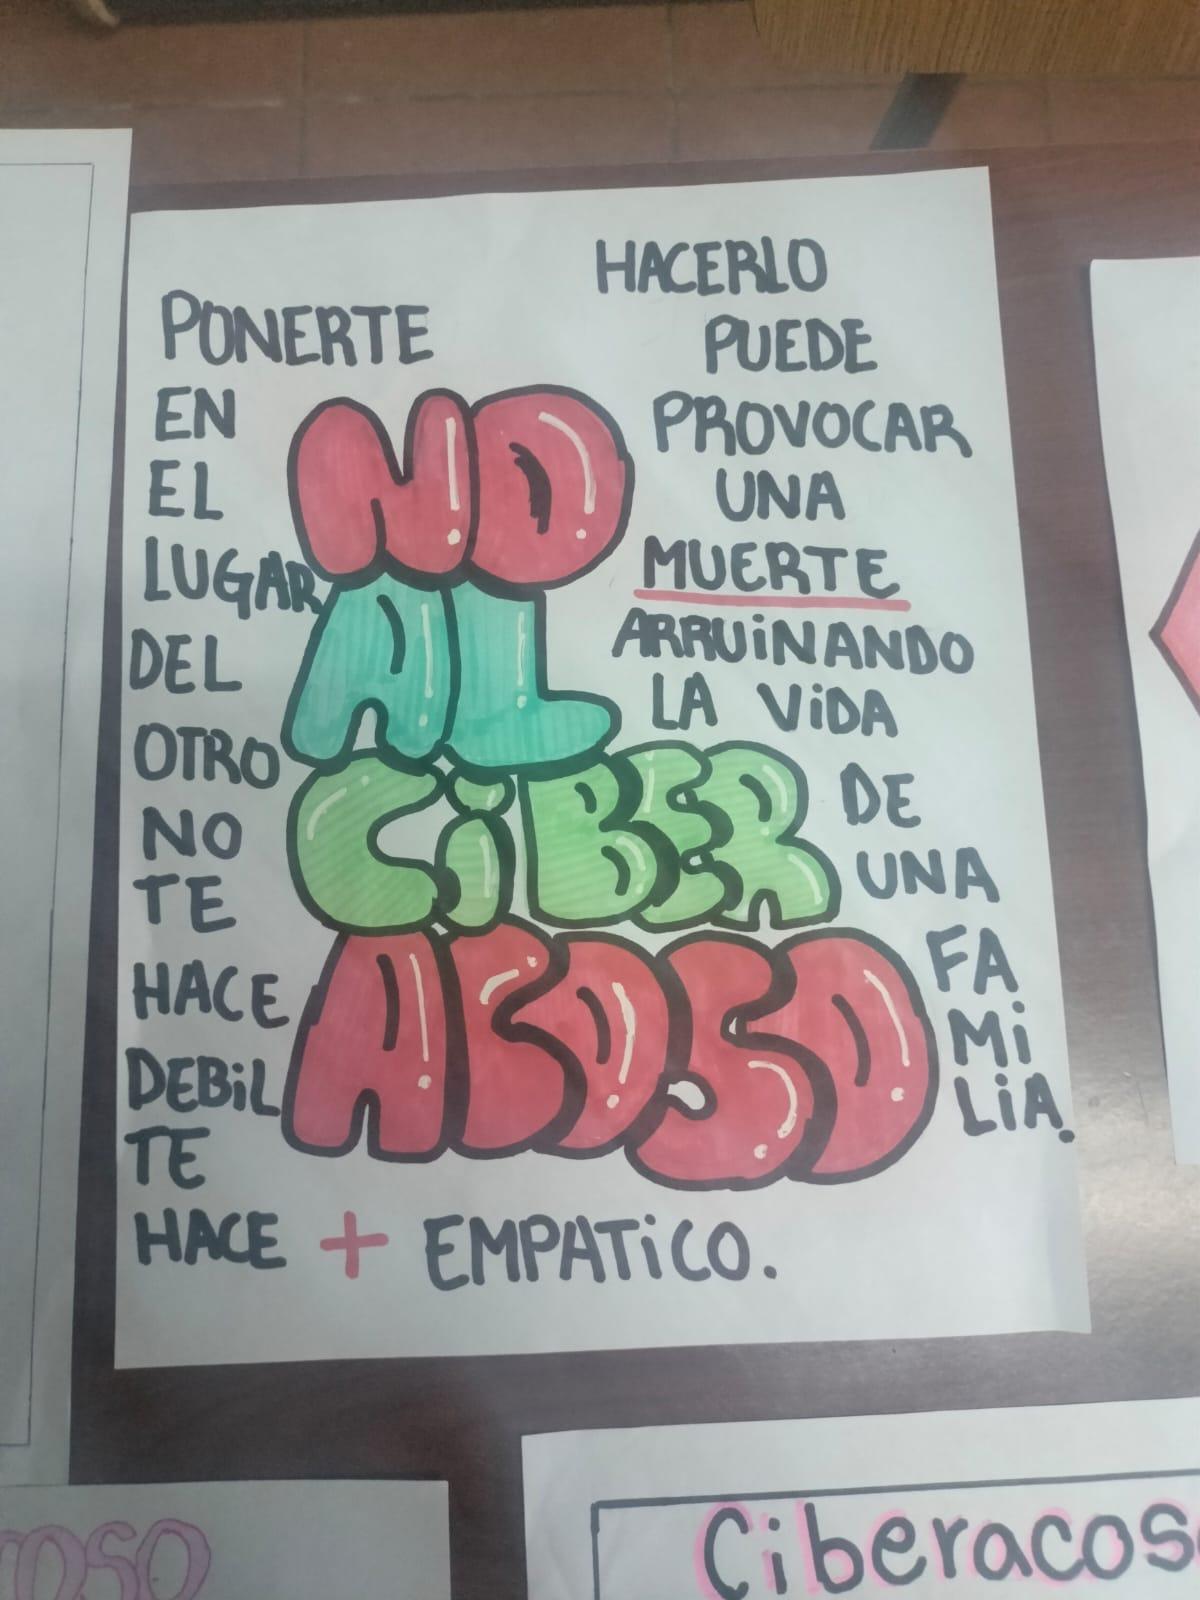 PONERTE
EN
EL
LUGAR
DEL
OTRO
NO
TE
HACE
DEBiL
TE
HACE + EMPATiCO.
NO
AL
CiBER
ACOSO
HACERLO
PUEDE
PROVOCAR
UNA
MUERTE
ARRUiNANDO
LA ViDA
DE
UNA
FA
Mi
LiA.
Ciberacoso